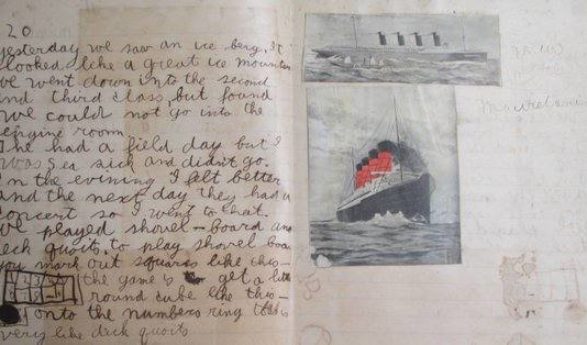 20
yesterday we saw an ice berg. It
looked like a great ice mountain
we went down into the second
and third class but found
we could not go into the
engine room
The had a field day but I
was sea sick and didnt go.
In the evening I felt better
and the next day they had a
concert so I went to that.
We played shovel-board and
deck quoits. to play shovel board
you mark out squares like this-
the game is to get a little
round cube like this-
onto the numbers ring this is
very like deck quoits